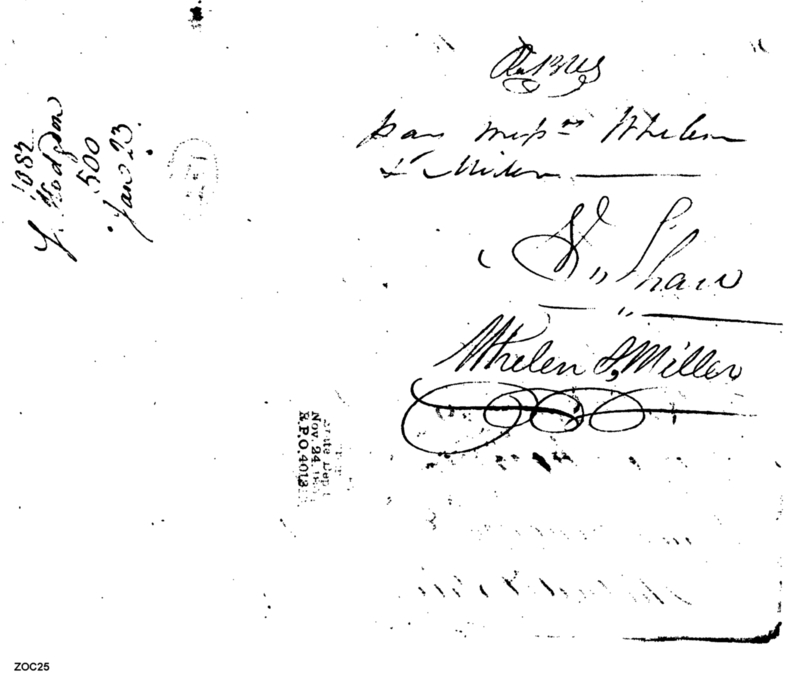 1082
J. Hodgson
500
Jan 23.
pay Mess rs Whelen
& Miller
Shaw
Whelen & Miller
Nov. 24
E.P.O. 4013
ZOC25